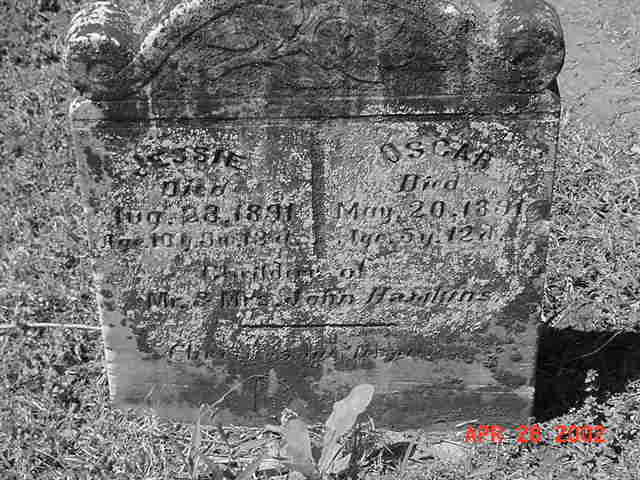 JESSIE
Died
Aug. 23, 1891
OSCAR
Died
May. 20, 1891
Age. 5 y. 12 d.
Children of
Mr. & Mrs. John Hawkins
APR 28 2002